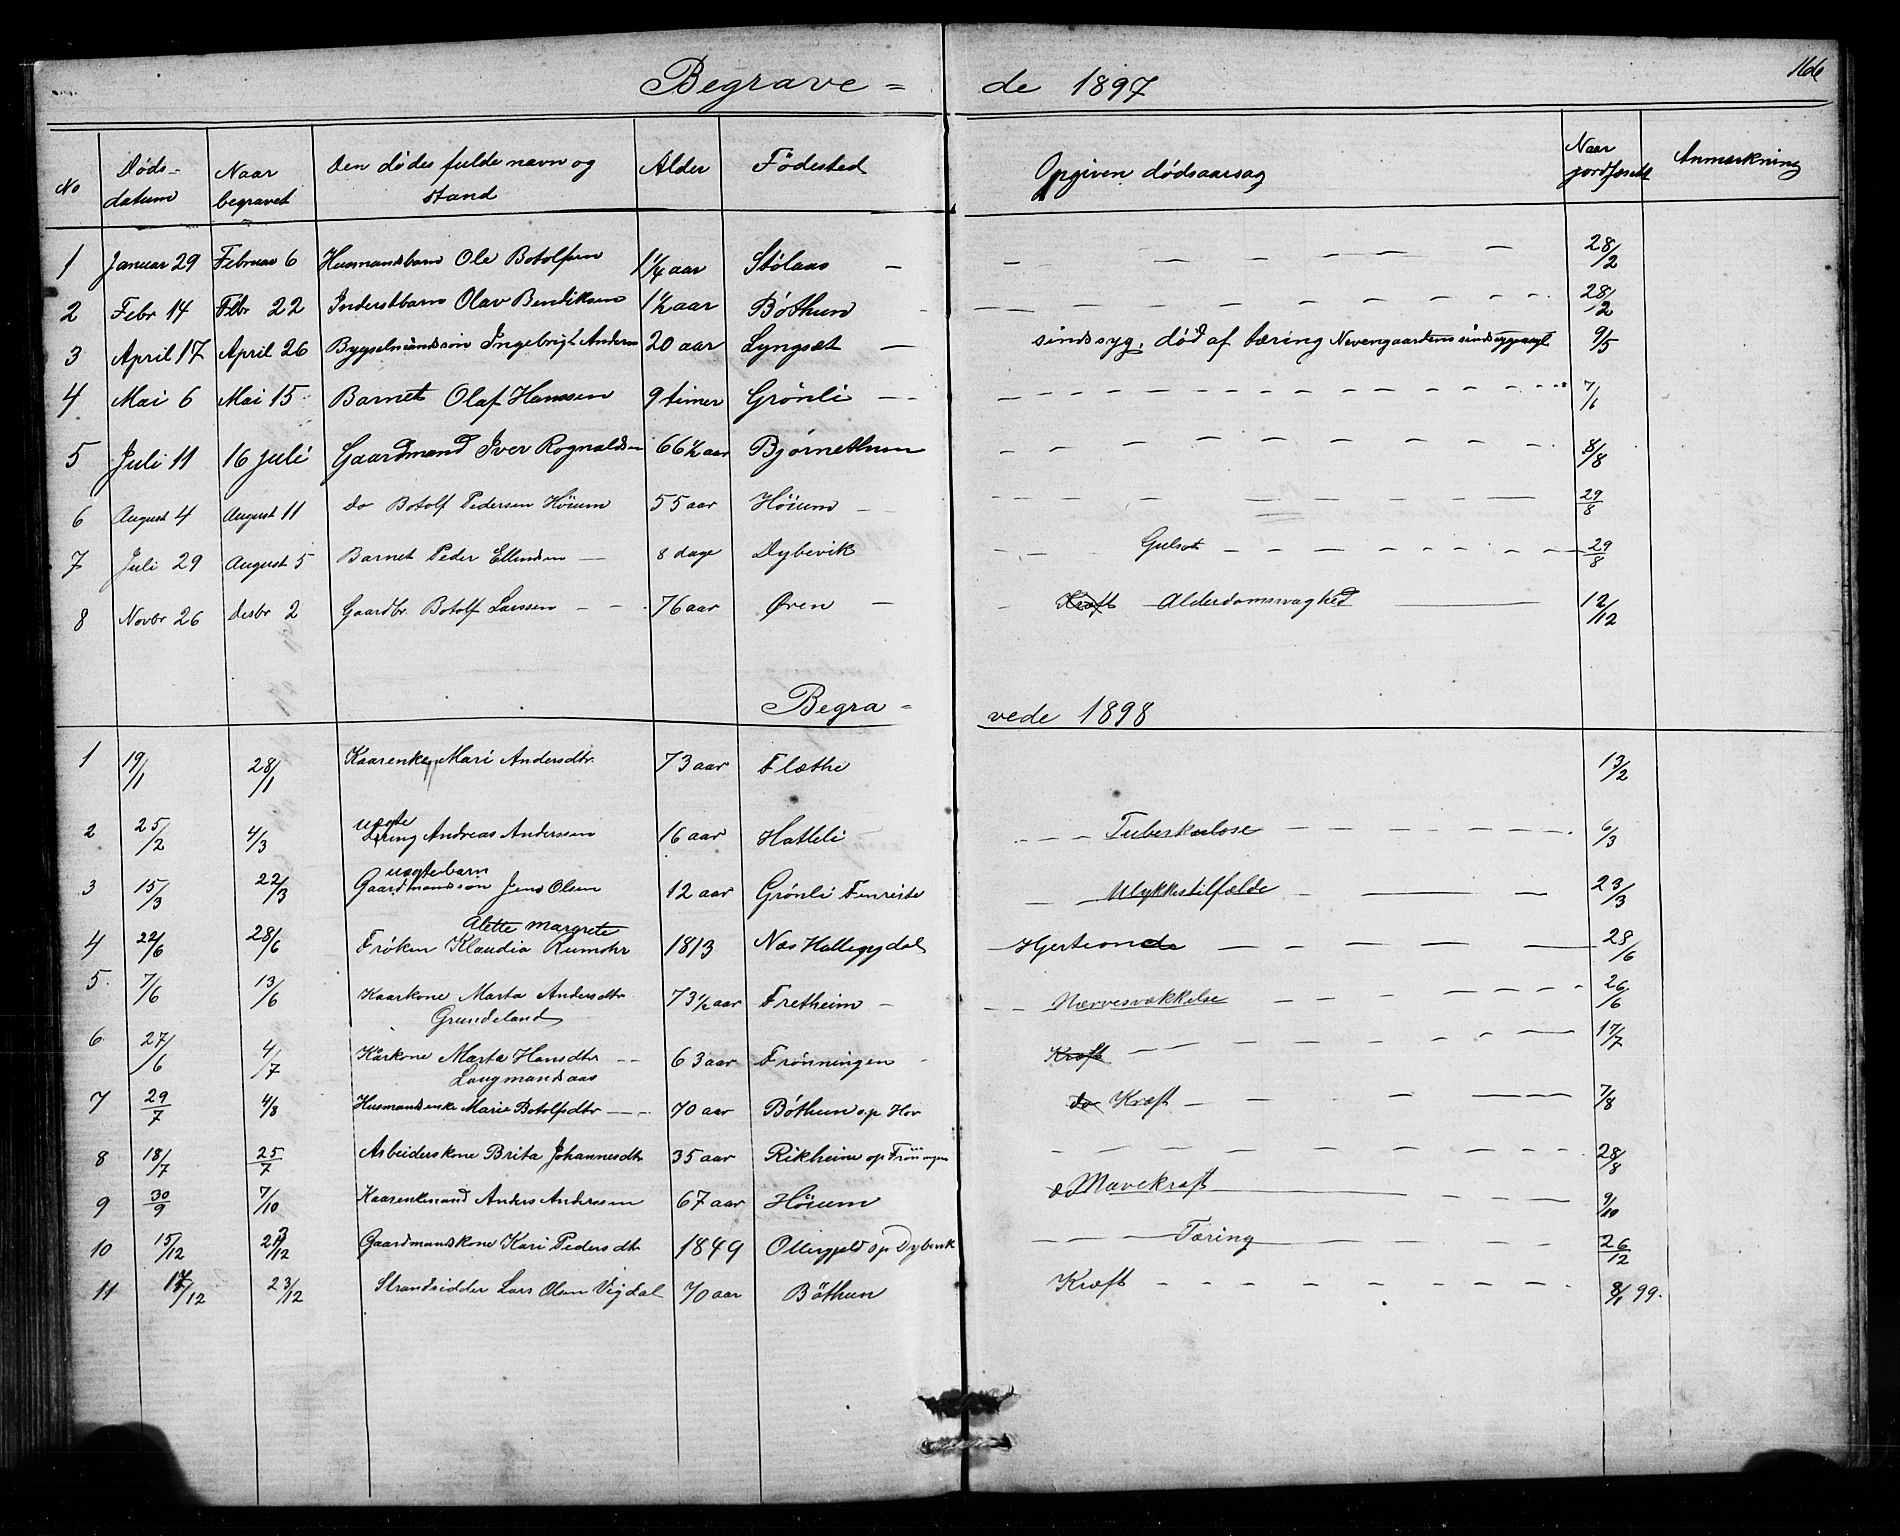 Begrave = de 1897 11de
No Døds-datum Naar begravet Den dødes fulde navn og stand Alder Födested Opgiven dødsaarsag Naar jordfæstet Anmærkning
1 Januar 29 Februar 6 Husmandsbarn Ole Botolfsen 1 1/4 aar Stølaas 28/2
2 Febr 14 Febr 22 Inderstbarn Olav Bendiksen 1 1/2 aar Bøthun 28/2
3 April 17 April 26 Bygselmandssøn Ingebrigt Anders 20 aar Lyngsæt sindssyg, død af tæring Nevengaardens sindssygeasyl 9/5
4 Mai 6 Mai 15 Barnet Olaf Hanssen 9 timer Grönli 7/6
5 Juli 11 16 juli Gaardmand Iver Rognaldsen 66 1/2 aar Bjørnethun 8/8
6 August 4 August 11 do Botolf Pedersen Höium 55 aar Höium 29/8
7 Juli 29 August 5 Barnet Peder Ellendsen 8 dage Dybevik Gulsot 29/8
8 Novbr 26 Desbr 2 Gaardbr. Botolf Larssen 76 aar Øren Kræft Alderdomssvaghed 12/12
Begra = vede 1898
1 19/1 28/1 Kaarenke Mari Andersdtr. 73 aar Flæthe 13/2
2 25/2 4/3 ugifte Andreas Anderssen 16 aar Hatleli Tuberkulose 6/3
ugiftebarn
3 15/3 22/3 Gaardmandssøn Jens Olsen 12 aar Grönli Ulykkestilfælde 23/3
Alette Margrete
4 22/6 28/6 Frøken Klaudia Rumohr 1813 Næs Hallegydal Hjerteonde 28/6
5 7/6 13/6 Kaarkone Marta Andersdtr 73 1/2 aar Fretheim Nærvesvækkelse 26/6
Grundeland
6 27/6 4/7 Kårkone Marta Hansdtr 63 aar Frönningen Kræft 17/7
Laugmandsaas
7 29/7 4/8 Husmandsenke Marie Botolfsdtr 70 aar Böthun op Hov do Kræft 7/8
8 18/7 25/7 Arbeiderskone Brita Johannesdtr 35 aar Rikheim op Frönningen 28/8
9 30/9 7/10 Kaarenkemand Anders Anderssen 67 aar Höium Mavekræft 9/10
10 15/12 /12 Gaardmandskone Kari Pedersdtr 1849 op Dybevik Tæring 26/12
11 17/12 23/12 Strandsidder Lars Olsen Vigdal 70 aar Böthun Kræft 8/1 99.